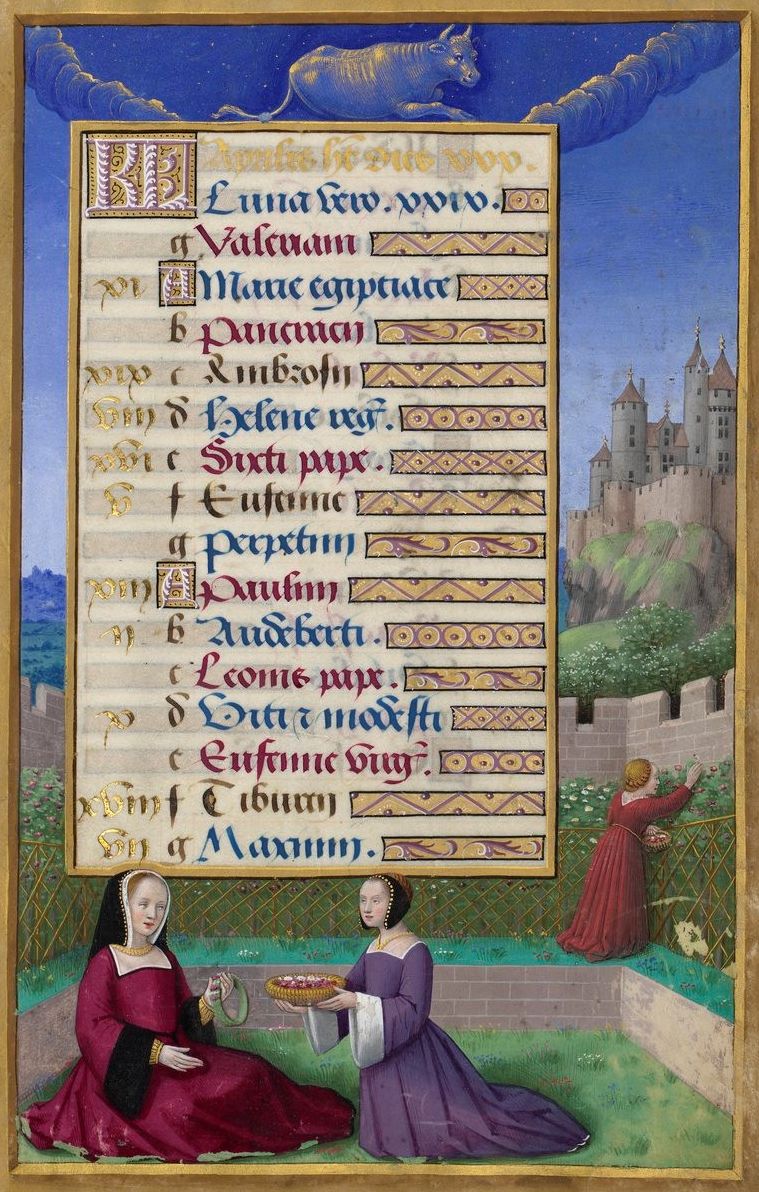 KL Aprilis hẽ dies xxx.
Luna vero. xxix.
g Valeriani
xi A Marie egiptiace
b Pancracii
xix c Ambrosii
viii d Helene reg̃.
xvi e Sixti pape.
v f Eufemie
g Perpetuii
xiii A Paulini
ii b Audeberti.
c Leonis pape.
x d Viti ⁊ modesti
e Eufemie virg̃.
xviii f Tiburcii
vii g Maximi.